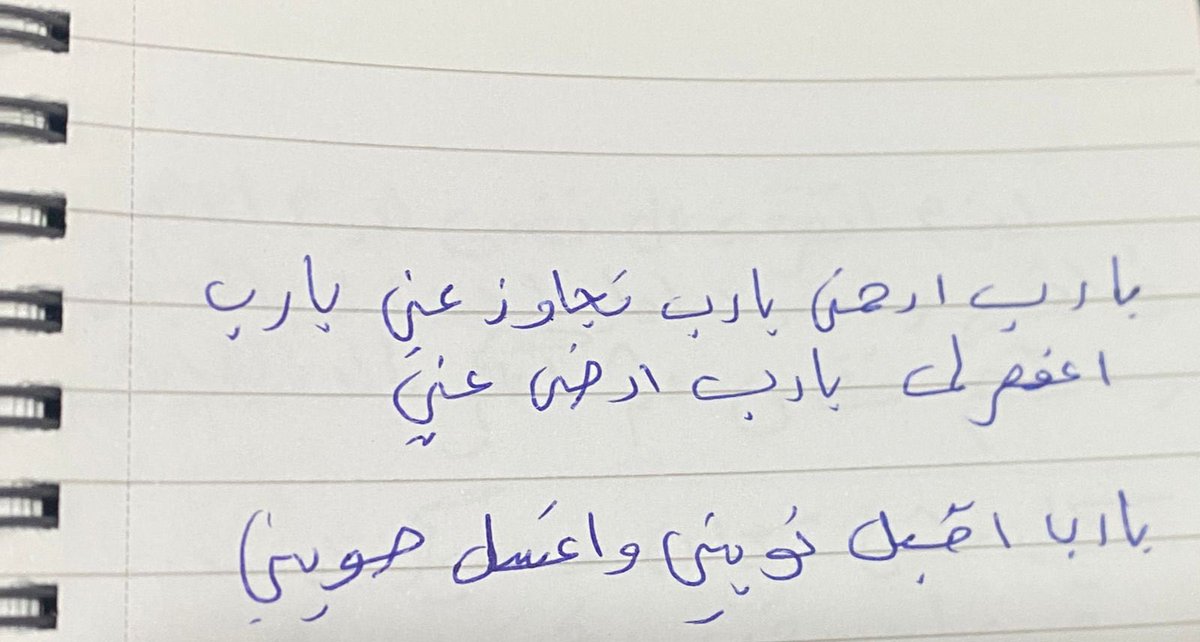 يارب ارحمني يارب تجاوز عني يارب
اغفر لي يارب ارضى عني
يارب اقبل توبتي واغسل حوبتي